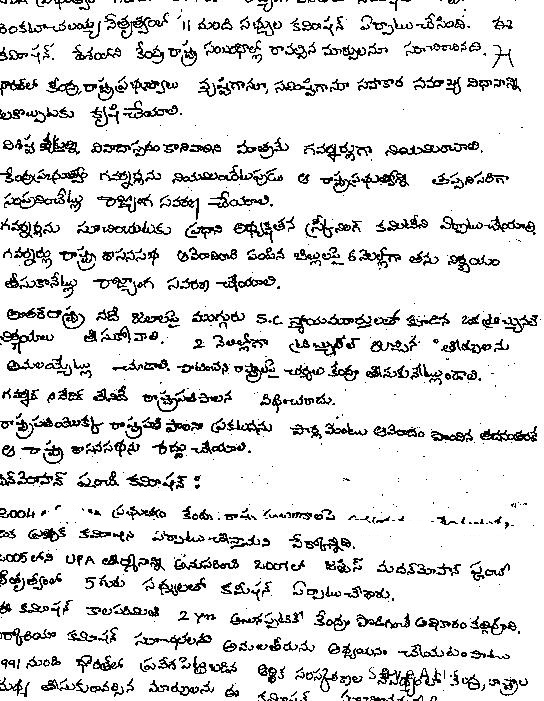 వెంకటాచలయ్య నేతృత్వంలో 11 మంది సభ్యుల కమిషన్ ఏర్పాటుచేసింది. ఈ
కమిషన్. దేశంలోని కేంద్ర రాష్ట్ర సంబంధాల్లో రావల్సిన మార్పులనూ సూచించినది.
భారత్‌లో కేంద్ర, రాష్ట్రప్రభుత్వాలు వ్యష్టిగానూ, సమిష్టిగానూ సహకార సమాఖ్య విధానాన్ని
కృషి చేయాలి.
విశిష్ట వ్యక్తుల్ని వివాదాస్పదం కానివారిని మాత్రమే గవర్నర్లుగా నియమించాలి.
కేంద్రప్రభుత్వం గవర్నర్లను నియమించేటపుడు ఆ రాష్ట్రప్రభుత్వాన్ని తప్పనిసరిగా
సంప్రదించేట్లు రాజ్యాంగ సవరణ చేయాలి.
గవర్నర్లను సూచించుటకు ప్రధాని అధ్యక్షతన స్క్రీనింగ్ కమిటీని ఏర్పాటుచేయాలి
గవర్నర్లు రాష్ట్ర శాసనసభ ఆమోదించి పంపిన బిల్లులపై 6 నెలల్లోగా తను నిర్ణయం
తీసుకొనేట్లు రాజ్యాంగ సవరణ చేయాలి.
అంతర్రాష్ట్ర నదీ జలాలపై ముగ్గురు S.C న్యాయమూర్తులతో కూడిన
నిర్ణయాలు తీసుకోవాలి. 2 నెలల్లోగా ట్రిబ్యునల్ ఇచ్చిన తీర్పులను
అమలయ్యేట్లు చూడాలి. పాటించని రాష్ట్రాలపై చర్యలు కేంద్రం తీసుకునేట్లుండాలి.
గవర్నర్ నివేదిక లేనిదే రాష్ట్రపతిపాలన విధించరాదు.
రాష్ట్రపతి పాలనా ప్రకటనను పార్లమెంటు ఆమోదం పొందిన తదనంతరమే
ఆ రాష్ట్ర శాసనసభను రద్దు చేయాలి.
మదన్‌మోహన్ పూంఛీ కమిషన్ :
2004 ప్రభుత్వం కేంద్ర రాష్ట్ర సంబంధాలపై
ఒక అత్యున్నత కమిషన్ ఏర్పాటు చేస్తామని పేర్కొన్నది.
2005లోని UPA తీర్మానాన్ని అనుసరించి 2007లో జస్టిస్ మదన్‌మోహన్ పూంఛీ
నేతృత్వంలో 5గురు సభ్యులతో కమిషన్ ఏర్పాటు చేశారు.
ఈ కమిషన్ కాలపరిమితి 2 yrs అయినప్పటికీ కేంద్రం పొడిగించే అధికారం కల్గివుంది.
సర్కారియా కమిషన్ సూచనలను అమలుతీరును అధ్యయనం చేయటంతో పాటు
1991 నుండి భారత్‌లో ప్రవేశపెట్టబడిన ఆర్థిక సంస్కరణల నేపథ్యంలో కేంద్ర, రాష్ట్రాల
మధ్య తీసుకురావల్సిన మార్పులను ఈ కమిషన్